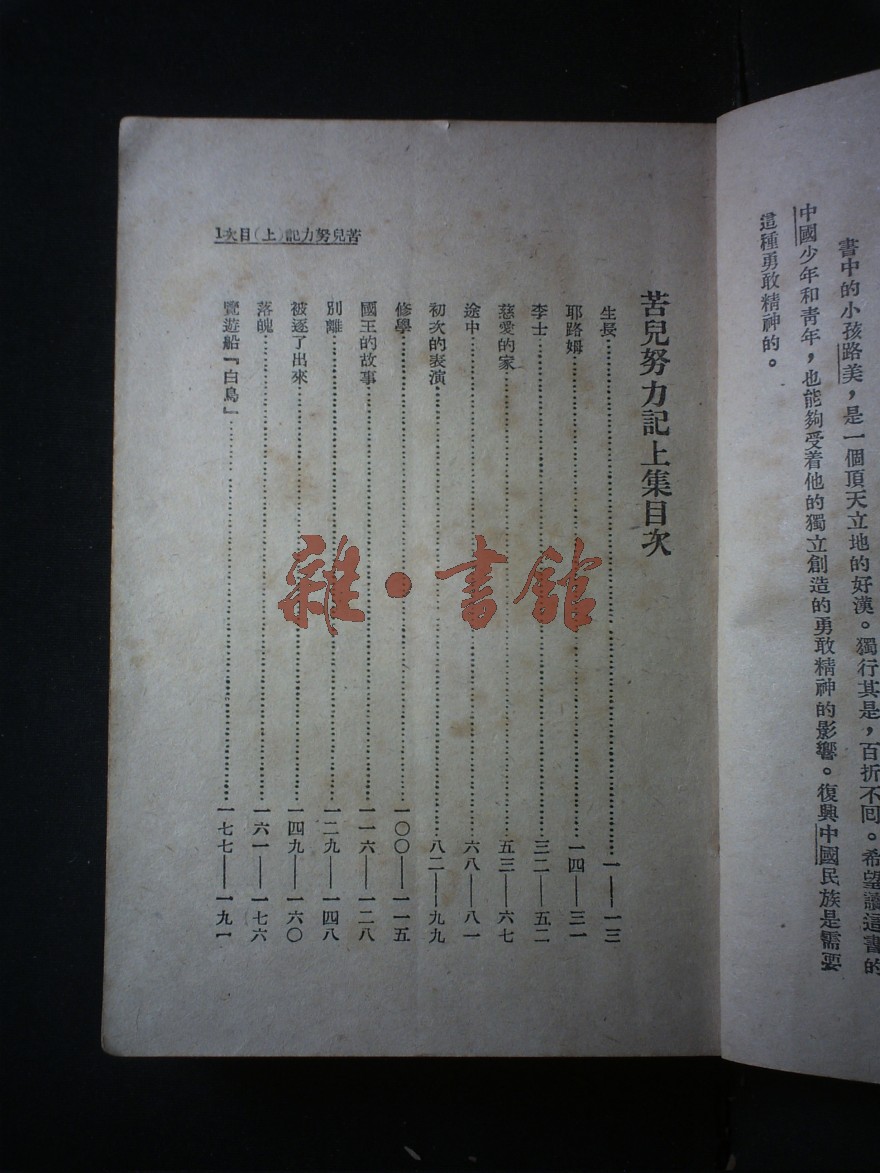 書中的小孩路美，是一個頂天立地的好漢。獨行其是，百折不回。希望讀這書的
中國少年和青年，也能夠受着他的獨立創造的勇敢精神的影響。復興中國民族是需要
這種勇敢精神的。
苦兒努力記上集目次
生長……一——一三
耶路姆……一四——三一
李士……三二——五二
慈愛的家……五三——六七
途中……六八——八一
初次的表演……八二——九九
修學……一〇〇——一一五
國王的故事……一一六——一二八
別離……一二九——一四八
被逐了出來……一四九——一六〇
落魄……一六一——一七六
覽遊船『白鳥』……一七七——一九一
苦兒努力記(上)目次1
雜·書館